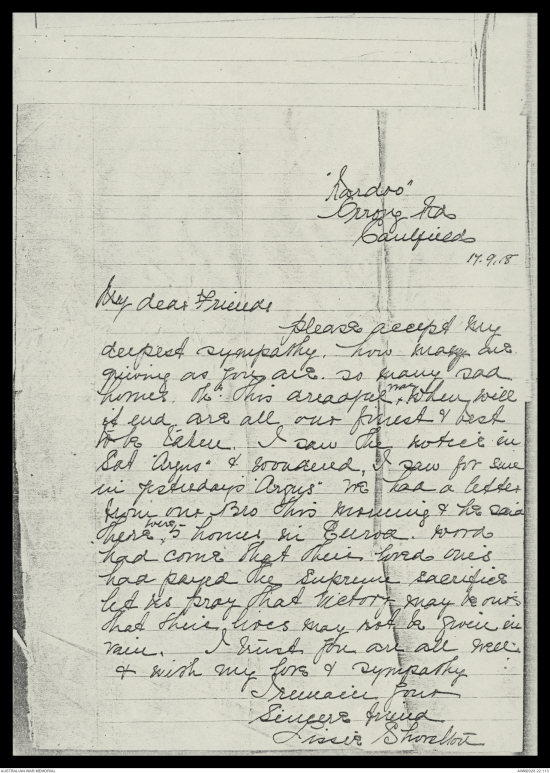 "Nardoo"
Orrong Rd
Caulfield
17.9.18
My dear Friends
please accept my
deepest sympathy. how many are
grieving as you are. so many sad
homes. Oh! this dreadful war, when will
it end are all our finest & best
to be taken. I saw the notice in
Sat "Argus" & wondered, I saw for sure
in yesterdays "Argus" We had a letter
from our Bro this morning & he said
there were 5 homes in Euroa. word
had come that their loved ones
had payed the supreme sacrifice
let us pray that victory may be ours
that their lives may not be given in
vain. I trust you are all well
& with my love & sympathy
I remain your
Sincere friend
Lissie
AUSTRALIAN WAR MEMORIAL